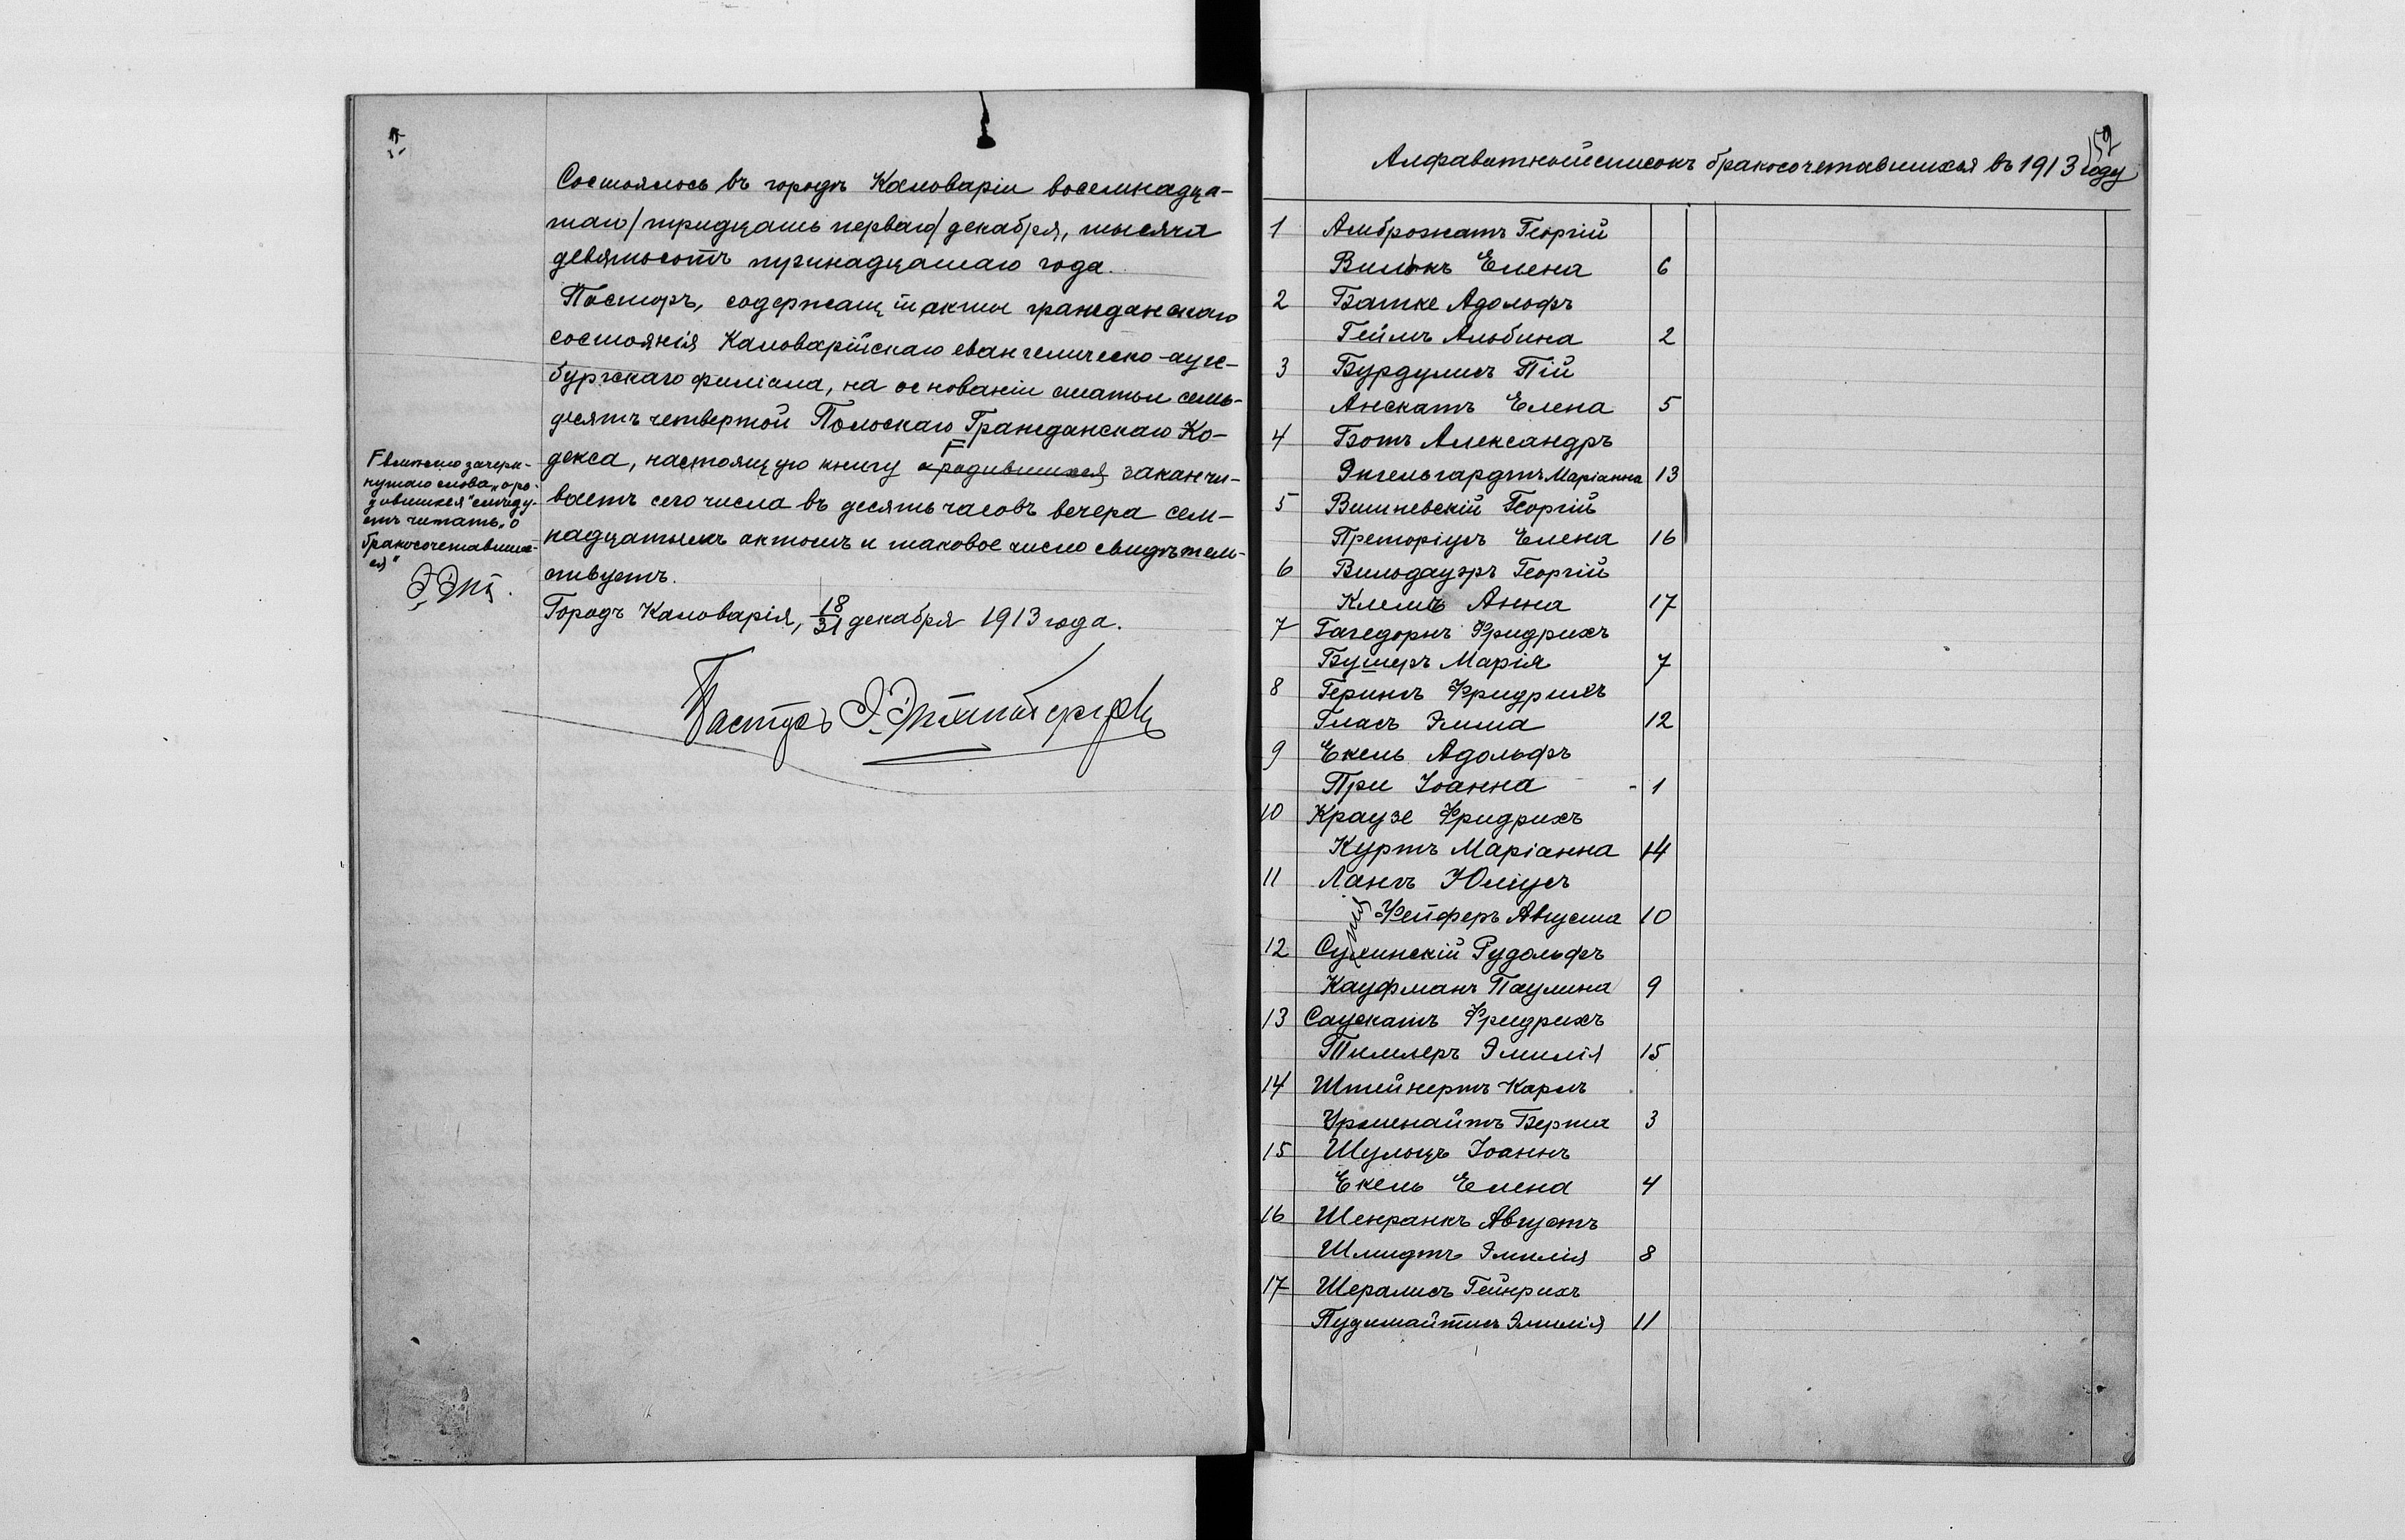 Состоялось въ городѣ Кальваріи восемнадца-
таго /тридцать перваго/ декабря, тысяча
девятьсотъ тринадцатаго года.
Пасторъ, содержащій акты гражданскаго
состоянія Кальварійскаго евангелическо-аугс-
бургскаго филіала, на основаніи статьи семь-
десятъ четвертой Польскаго Гражданскаго Ко-
декса, настоящую книгу о родившихся заканчи-
ваетъ сего числа въ десять часовъ вечера сем-
надцатымъ актомъ и таковое число свидѣтель-
ствуетъ.
Городъ Кальварія, 18/31 декабря 1913 года.
Пасторъ Э.
вмѣсто зачерк-
нутаго слова „о ро-
дившихся" слѣду-
етъ читать „о
бракосочетавших-
ся"
159
Алфавитный списокъ бракосочетавшихся въ 1913 году
1 Амброжатъ Георгій
Вилькъ Елена 6
2 Батке Адольфъ
Геймъ Альбина 2
3 Бурдулисъ Пій
Анскатъ Елена 5
4 Ботъ Александръ
Энгельгардтъ Маріанна 13
5 Вишневскій Георгій
Преторіусъ Елена 16
6 Вильдауэръ Георгій
Клемъ Анна 17
7 Гагедорнъ Фридрихъ
Бушеръ Марія 7
8 Герингъ Фридрихъ
Гласъ Эмма 12
9 Екель Адольфъ
При Іоанна - 1
10 Краузе Фридрихъ
Куртъ Маріанна 14
11 Лангъ Юліусъ
Фейферъ Августа 10
12 Сулинскій Рудольфъ
Кауфманъ Паулина 9
13 Саускатъ Фридрихъ
Тиммеръ Эмилія 15
14 Штейнертъ Карлъ
Урменайтъ Берта 3
15 Шульцъ Іоаннъ
Екель Елена 4
16 Шенранкъ Августъ
Шмидтъ Эмилія 8
17 Шералисъ Гейнрихъ
Пудимайтисъ Эмилія 11